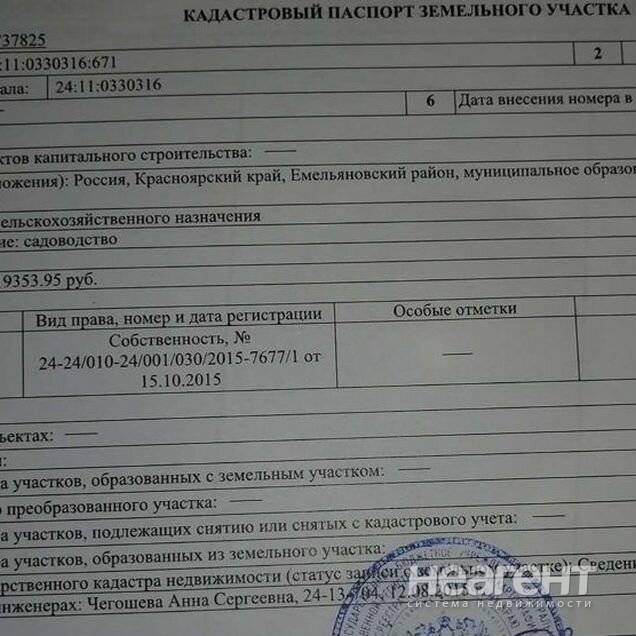 КАДАСТРОВЫЙ ПАСПОРТ ЗЕМЕЛЬНОГО УЧАСТКА
737825
:11:0330316:671
2
ала: 24:11:0330316
6 Дата внесения номера в
ктов капитального строительства: —
ложения): Россия, Красноярский край, Емельяновский район, муниципальное образо
ельскохозяйственного назначения
ие: садоводство
9353.95 руб.
Вид права, номер и дата регистрации
Особые отметки
Собственность, №
24-24/010-24/001/030/2015-7677/1 от
15.10.2015
—
ъектах: —
:
а участков, образованных с земельным участком: —
о преобразованного участка: —
а участков, подлежащих снятию или снятых с кадастрового учета: —
а участков, образованных из земельного участка:
арственного кадастра недвижимости (статус записи о земельном участке): Сведени
инженерах: Чегошева Анна Сергеевна, 24-13-704, 12.08.20
неагент
система недвижимости